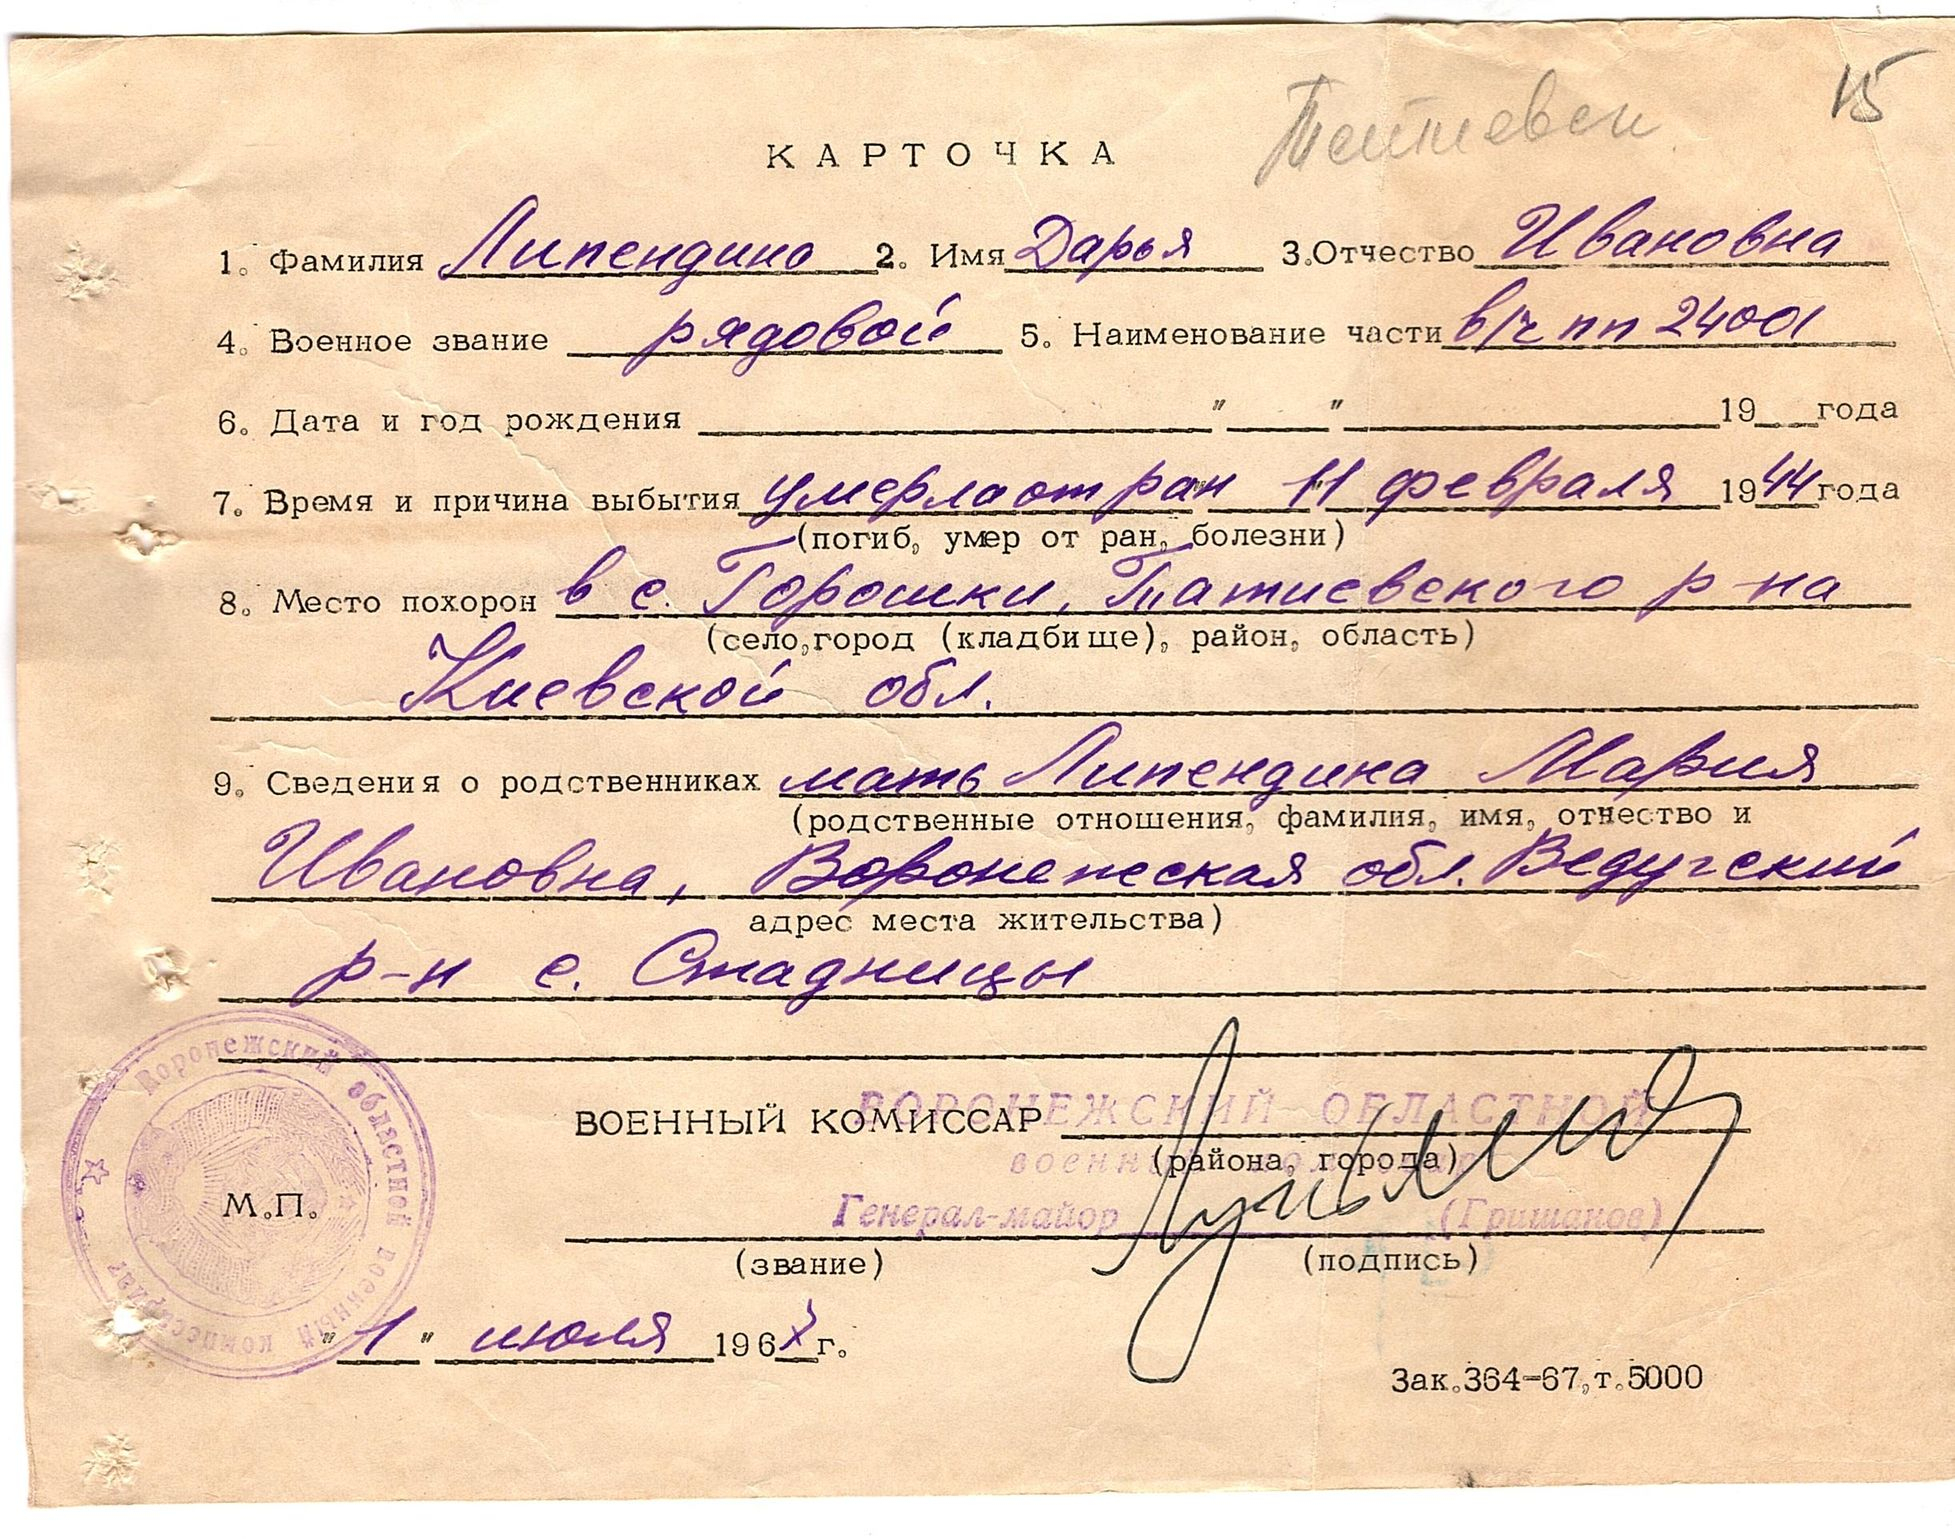 15
КАРТОЧКА
1. Фамилия Липендина 2. Имя Дарья 3. Отчество Ивановна
4. Военное звание рядовой 5. Наименование части в/ч пп 24001
6. Дата и год рождения " " 19 года
7. Время и причина выбытия умерла от ран "11" февраля 1944 года
(погиб, умер от ран, болезни)
8. Место похорон в с. Горошки, Татиевского р-на
(село, город (кладбище), район, область)
Киевской обл.
9. Сведения о родственниках мать Липендина Мария
(родственные отношения, фамилия, имя, отчество и
Ивановна, Воронежская обл. Ведугский
адрес места жительства)
р-н с. Стадницы
ВОЕННЫЙ КОМИССАР ВОРОНЕЖСКИЙ ОБЛАСТНОЙ
(района, города)
Воронежский областной военный комиссариат
М.П.
Генерал-майор (Гришанов)
(звание) (подпись)
"1" июля 1967 г.
Зак.364-67,т.5000